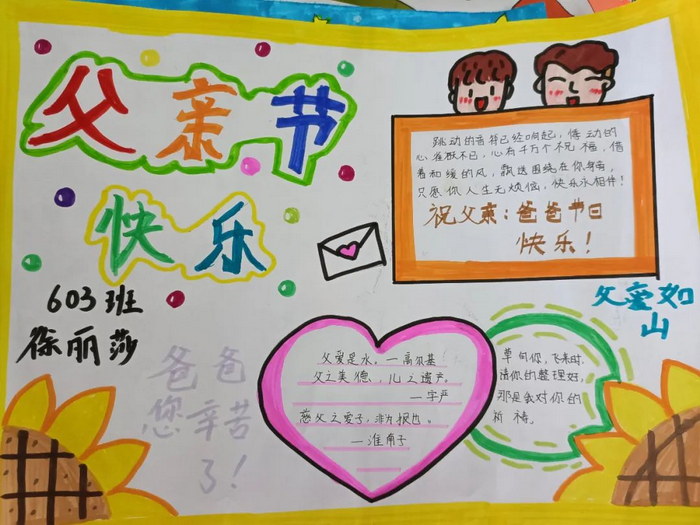 父亲节
快乐
603班
徐丽莎
爸爸
您辛苦
了!
跳动的音符已经响起,悸动的
心雀跃不已,心有千万个祝福,借
着和缓的风,飘送围绕在你身旁,
只愿你人生无烦恼,快乐永相伴!
祝父亲:爸爸节日
快乐!
父爱如
山
父爱是水。—高尔基
父之美德,儿之遗产。
—字严
慈父之爱子,非为报也。
—淮南子
草句你,飞来时,
请你的整理好,
那是会对你的
祈祷。